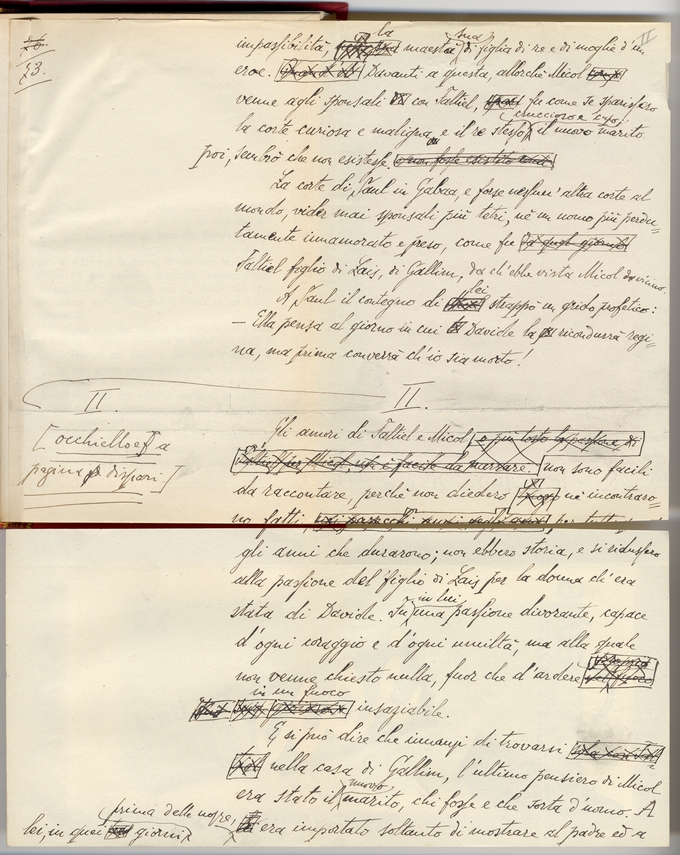 73.
II
impassibilità, la maestà sua di figlia di re e di moglie d'un
eroe. Davanti a questa, allorchè Micol
venne agli sponsali con Faltiel, fu come se sparissero
la corte curiosa e maligna, e il re stesso cruccioso e cupo: il nuovo marito
poi, sembrò che non esistesse. o non fosse esistito mai
La corte di Saul in Gabaa, e forse nessun' altra corte al
mondo, vider mai sponsali più tetri; nè un uomo più perdu=
tamente innamorato e preso, come fu da quel giorno
Faltiel figlio di Lais, di Gallim, da ch'ebbe vista Micol da vicino.
A Saul il contegno di lei strappò un grido profetico:
— Ella pensa al giorno in cui Davide la ricondurrà regi=
na, ma prima converrà ch'io sia morto!
II.
II.
[occhiello et a
pagina dispari]
Gli amori di Faltiel e Micol, o piu tosto la passione di
Faltiel per Micol, non è facile da narrare. non sono facili
da raccontare, perchè non diedero nè incontraro=
no fatti, per tutti
gli anni che durarono; non ebbero storia, e si ridussero
alla passione del figlio di Lais per la donna ch'era
stata di Davide. Fu in lui una passione divorante, capace
d'ogni coraggio e d'ogni umiltà, ma alla quale
non venne chiesto nulla, fuor che d'ardere
in un fuoco insaziabile.
E si può dire che innanzi di trovarsi
nella casa di Gallim, l'ultimo pensiero di Micol
era stato il nuovo marito, chi fosse e che sorta d'uomo. A
lei, in quei giorni prima delle nozze, era importato soltanto di mostrare al padre ed a